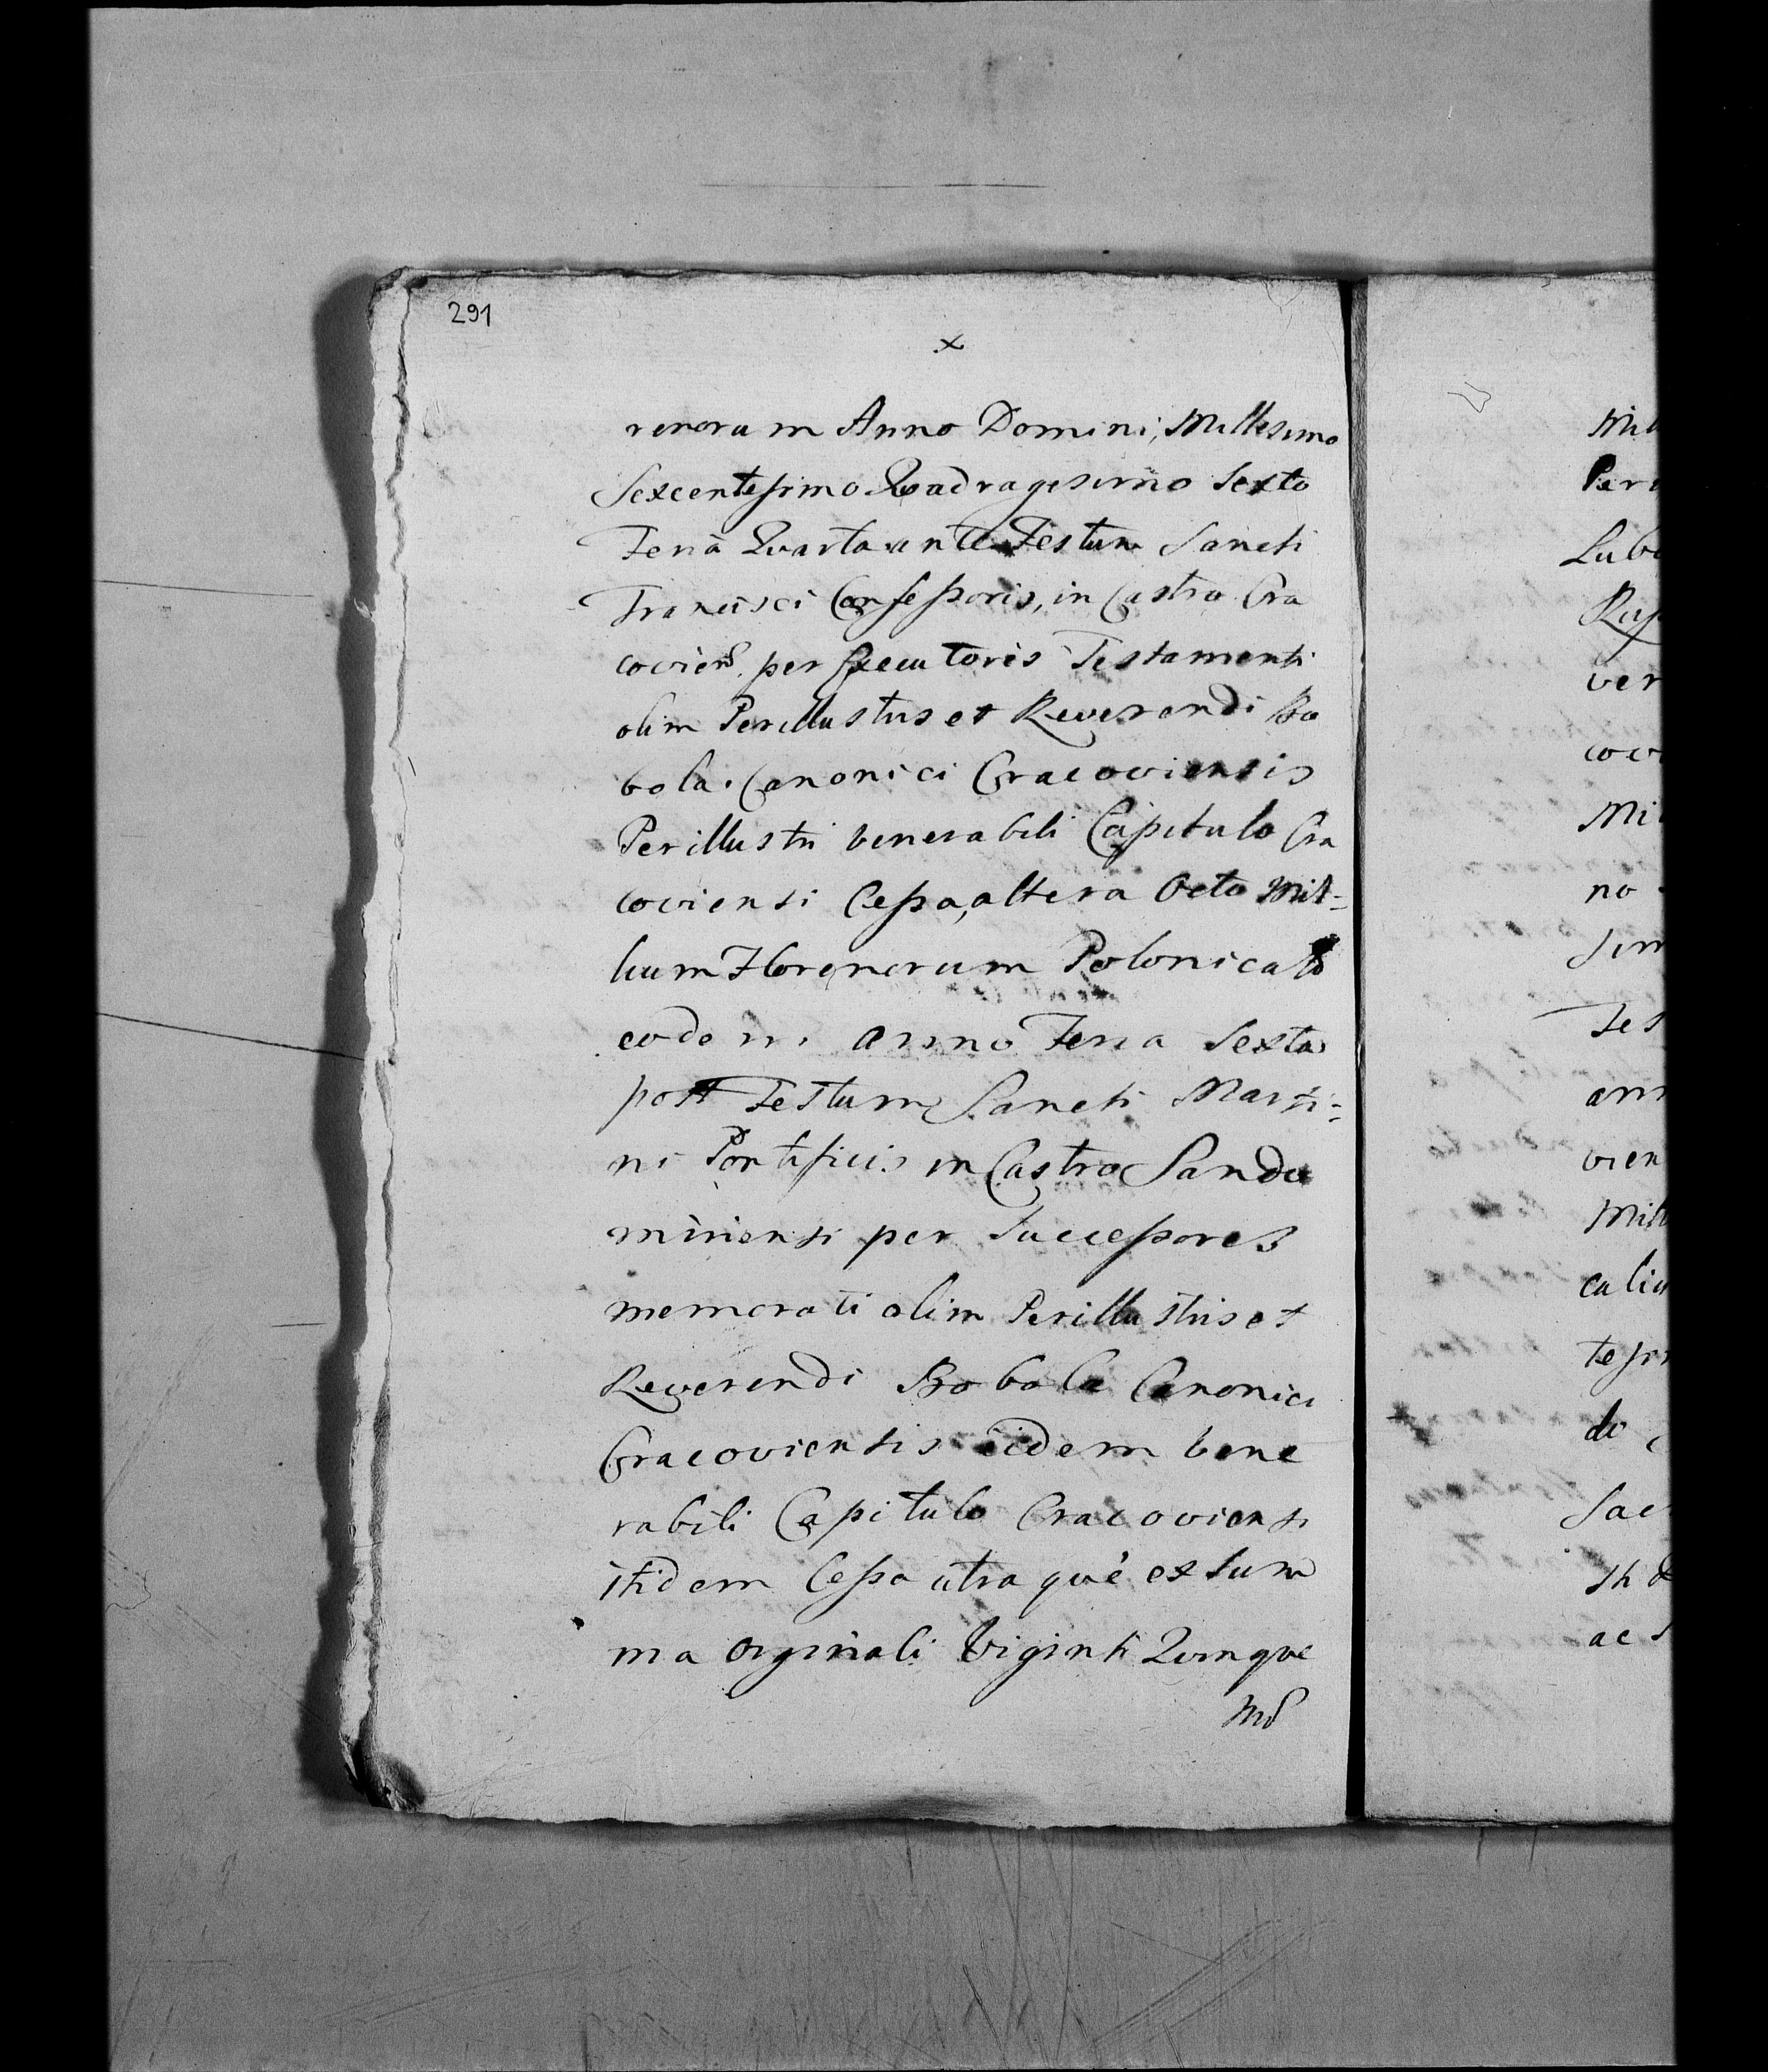 291
x
renorum Anno Domini, Millesimo
Sexcentesimo Quadragesimo Sexto
Feria Quarta ante Festum Sancti
Francisci Confessoris, in Castro Cra
covien. per Executores Testamenti
olim Perillustris et Reverendi Bo
bola. Canonici Cracoviensis
Perillustri Venerabili Capitulo Cra
coviensi Cessa, altera Octo Mil-
lium Florenorum Polonical
eodem anno Feria Sexta
post Festum Sancti Marti-
ni Pontificis in Castro Sando
miriensi per Successores
memorati olim Perillustris et
Reverendi Bobola Canonici
Cracoviensis eidem Vene
rabili Capitulo Cracoviensi
itidem Cessa utraque ex Sum
ma Orginali Viginti Quinque
Mil
Per
Lub
ver
cov
Mi
no
sim
Fes
ann
vien
Mill
caliu
tesi
do
Sac
ac